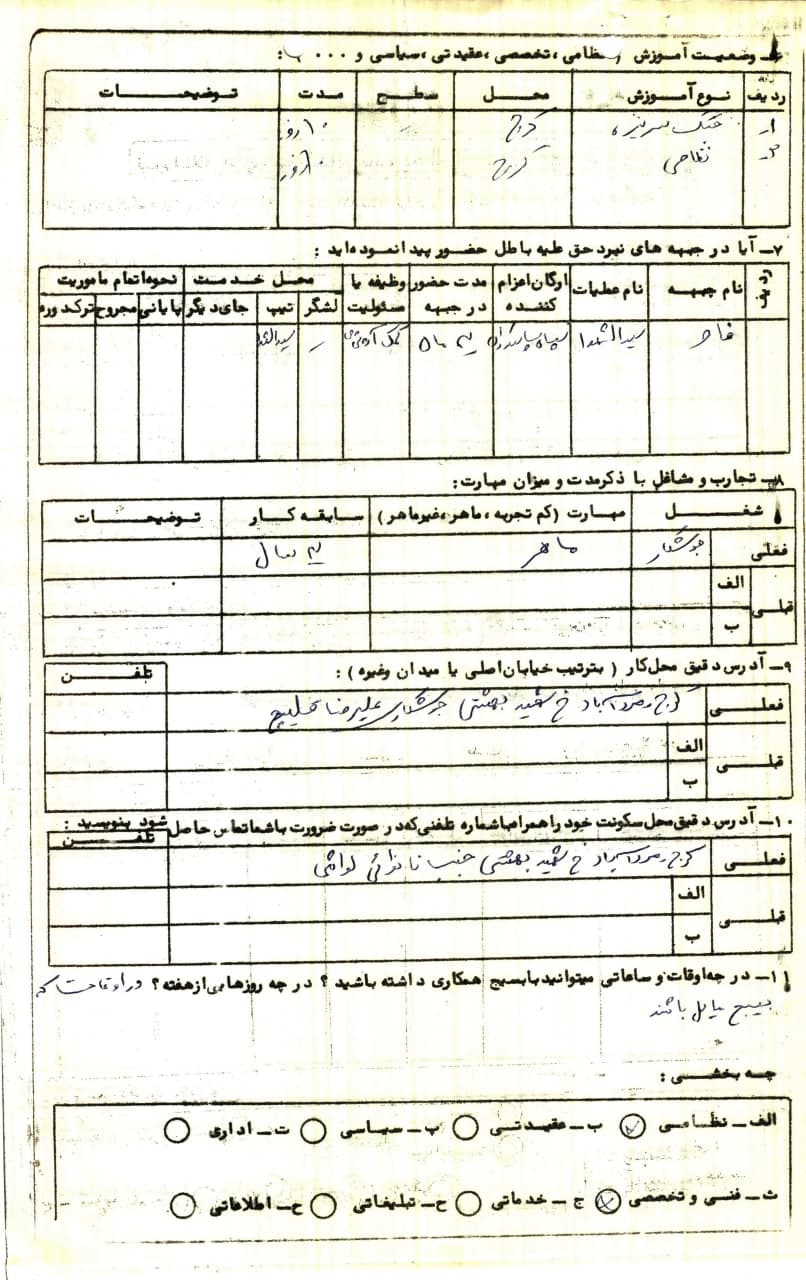 ۶ـ وضعیت آموزش (نظامی، تخصصی، عقیدتی، سیاسی و ۰۰۰):
ردیف نوع آموزش محل سطح مدت توضیحات
۱ـ جنگ سرنیزه کرج ۱۰ روز
۲ـ نظامی کرج
۷ـ آیا در جبهه های نبرد حق علیه باطل حضور پیدا نموده اید:
ردیف نام جبهه نام عملیات ارگان اعزام کننده مدت حضور در جبهه وظیفه یا مسئولیت محل خدمت نحوه اتمام ماموریت
لشگر تیپ جای دیگر پایانی مجروح ترک دوره
سیدالشهدا سپاه پاسداران سیدالشهدا
۸ـ تجارب و مشاغل با ذکر مدت و میزان مهارت:
شغل مهارت (کم تجربه، ماهر، غیرماهر) سابقه کار توضیحات
فعلی جوشکار ماهر سال
قبلی الف
ب
۹ـ آدرس دقیق محل کار (بترتیب خیابان اصلی یا میدان وغیره): تلفن
فعلی کرج خ شهید بهشتی جوشکاری علیرضا
قبلی الف
ب
۱۰ـ آدرس دقیق محل سکونت خود را همراه با شماره تلفنی که در صورت ضرورت با شما تماس حاصل شود بنویسید: تلفن
فعلی کرج خ شهید بهشتی جنب نانوائی لواشی
قبلی الف
ب
۱۱ـ در چه اوقات و ساعاتی میتوانید با بسیج همکاری داشته باشید؟ در چه روزهایی از هفته؟ در اوقات که
بسیج مایل باشند
چه بخشی:
الف ـ نظامی ب ـ عقیدتی پ ـ سیاسی ت ـ اداری
ث ـ فنی و تخصصی ج ـ خدماتی ح ـ تبلیغاتی ح ـ اطلاعاتی